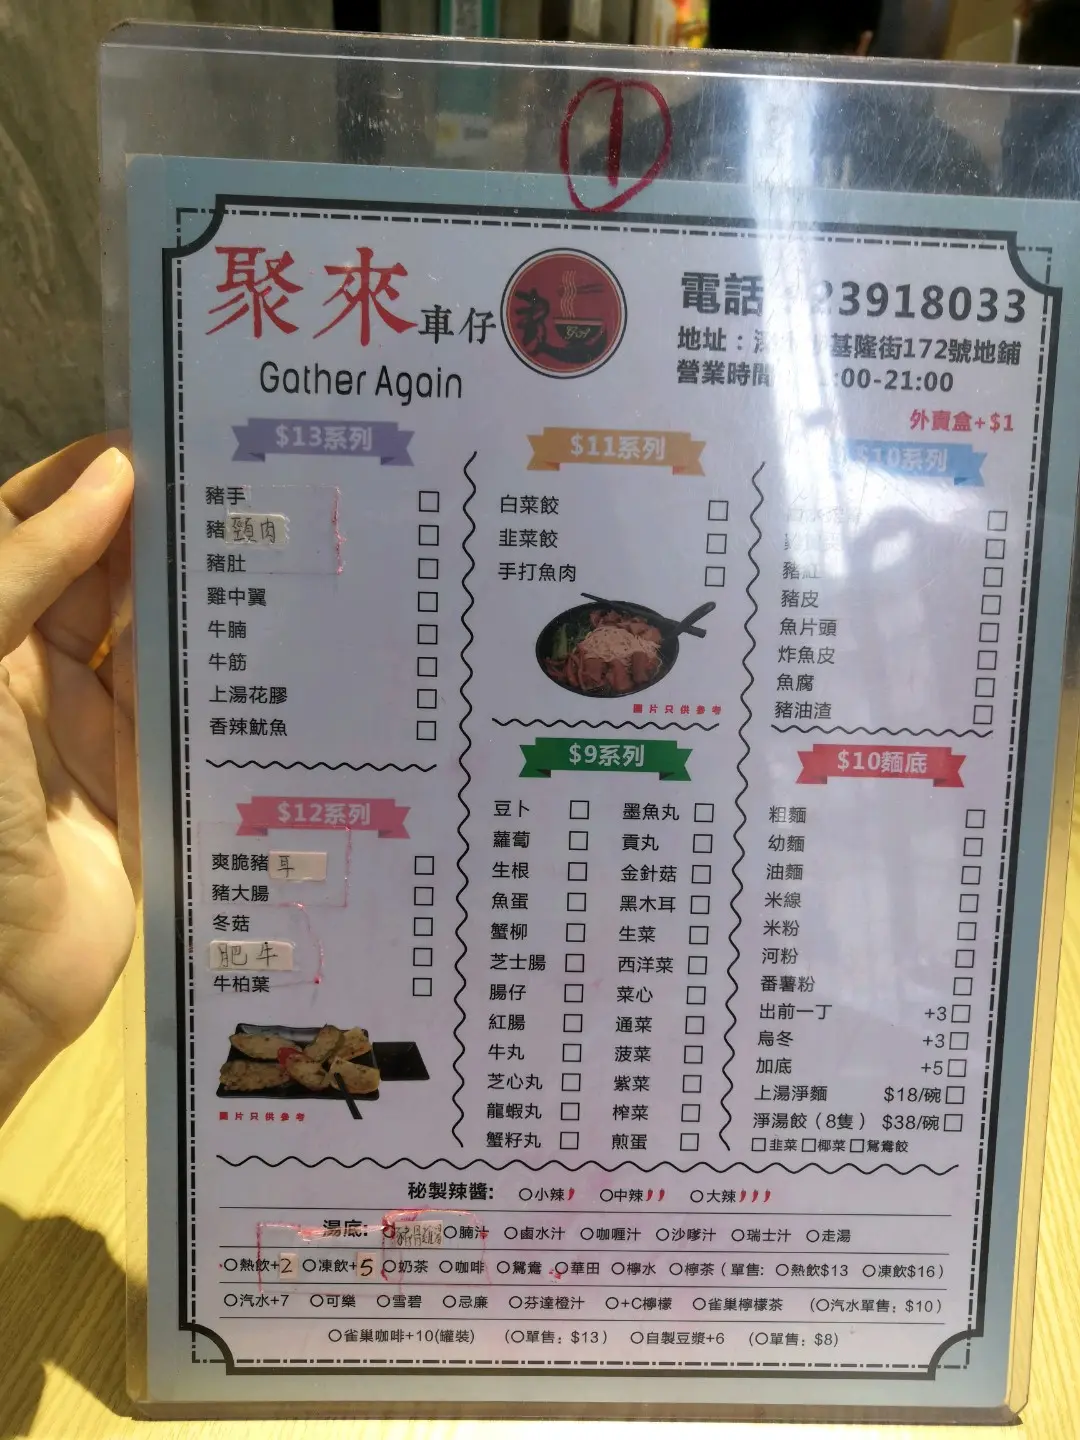 1
聚來車仔
Gather Again
電話 23918033
地址：深 基隆街172號地鋪
營業時間 :00-21:00
外賣盒+$1
$13系列
豬手
豬頸肉
豬肚
雞中翼
牛腩
牛筋
上湯花膠
香辣魷魚
$12系列
爽脆豬耳
豬大腸
冬菇
肥牛
牛柏葉
圖片只供參考
$11系列
白菜餃
韭菜餃
手打魚肉
圖片只供參考
$9系列
豆卜
蘿蔔
生根
魚蛋
蟹柳
芝士腸
腸仔
紅腸
牛丸
芝心丸
龍蝦丸
蟹籽丸
墨魚丸
貢丸
金針菇
黑木耳
生菜
西洋菜
菜心
通菜
菠菜
紫菜
榨菜
煎蛋
$10系列
豬紅
豬皮
魚片頭
炸魚皮
魚腐
豬油渣
$10麵底
粗麵
幼麵
油麵
米線
米粉
河粉
番薯粉
出前一丁 +3
烏冬 +3
加底 +5
上湯淨麵 $18/碗
淨湯餃（8隻） $38/碗
韭菜 椰菜 鴛鴦餃
秘製辣醬: 小辣 中辣 大辣
湯底: 腩汁 鹵水汁 咖喱汁 沙嗲汁 瑞士汁 走湯
熱飲+2 凍飲+5 奶茶 咖啡 鴛鴦 華田 檸水 檸茶（單售: 熱飲$13 凍飲$16）
汽水+7 可樂 雪碧 忌廉 芬達橙汁 +C檸檬 雀巢檸檬茶 （汽水單售: $10）
雀巢咖啡+10(罐裝) （單售: $13） 自製豆漿+6 （單售: $8）